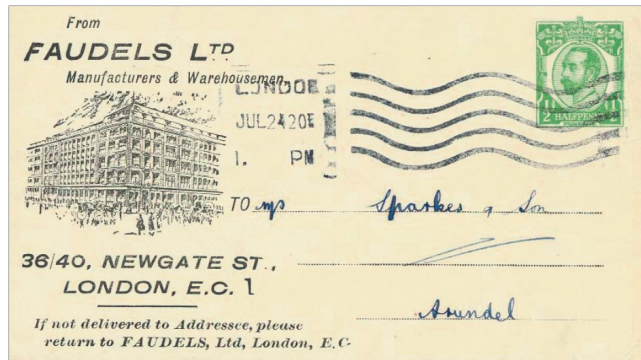 From
FAUDELS LTD
Manufacturers & Warehousemen
LONDON
JUL 24 20
1. PM
2 HALFPENNY
TO M/s Sparkes & Son
36/40, NEWGATE ST.,
LONDON, E.C. 1
Arundel
If not delivered to Addressee, please
return to FAUDELS, Ltd, London, E.C.